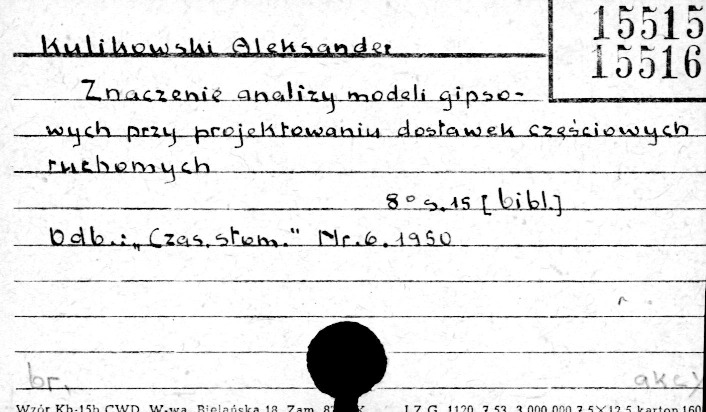 15515
15516
Kulikowski Aleksander
Znaczenie analizy modeli gipso-
wych przy projektowaniu dostawek częściowych
ruchomych
8° s. 15 [bibl.]
Odb.: „Czas. stom." Nr. 6. 1950
br.
akc
Wzór Kh-15b CWD, W-wa, Bielańska 18, Zam. I.Z.G. 1120 7.53 3.000.000 7,5×12,5 karton 160